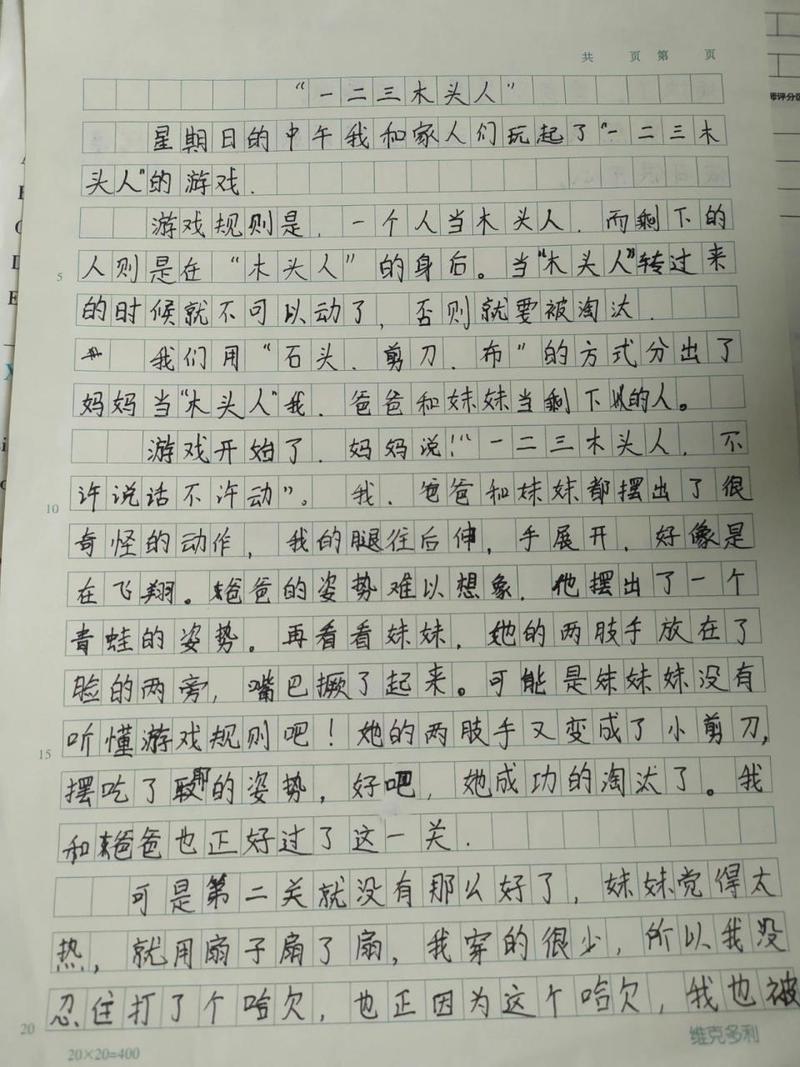 共 页 第 页
“一二三木头人”
星期日的中午我和家人们玩起了“一二三木
头人”的游戏.
游戏规则是.一个人当木头人.而剩下的
5 人则是在“木头人”的身后。当“木头人”转过来
的时候就不可以动了,否则就要被淘汰.
我们用“石头.剪刀.布”的方式分出了
妈妈当“木头人”我.爸爸和妹妹当剩下的人。
游戏开始了.妈妈说!“一二三木头人.不
10 许说话不许动”。我.爸爸和妹妹都摆出了很
奇怪的动作,我的腿往后伸,手展开.好像是
在飞翔。爸爸的姿势难以想象.他摆出了一个
青蛙的姿势。再看看妹妹.她的两肢手放在了
脸的两旁,嘴巴撅了起来。可能是妹妹妹没有
15 听懂游戏规则吧!她的两肢手又变成了小剪刀,
摆吃了耶的姿势,好吧,她成功的淘汰了。我
和爸爸也正好过了这一关.
可是第二关就没有那么好了,妹妹觉得太
热,就用扇子扇了扇,我穿的很少,所以我没
20 忍住打了个哈欠,也正因为这个哈欠,我也被
20×20=400
维克多利
师评分区